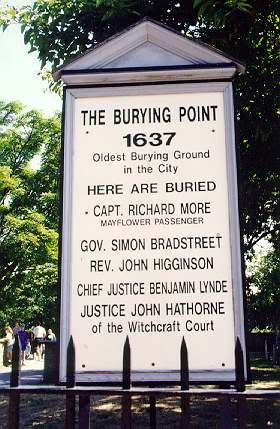 THE BURYING POINT
1637
Oldest Burying Ground
in the City
HERE ARE BURIED
CAPT. RICHARD MORE
MAYFLOWER PASSENGER
GOV. SIMON BRADSTREET
REV. JOHN HIGGINSON
CHIEF JUSTICE BENJAMIN LYNDE
JUSTICE JOHN HATHORNE
of the Witchcraft Court